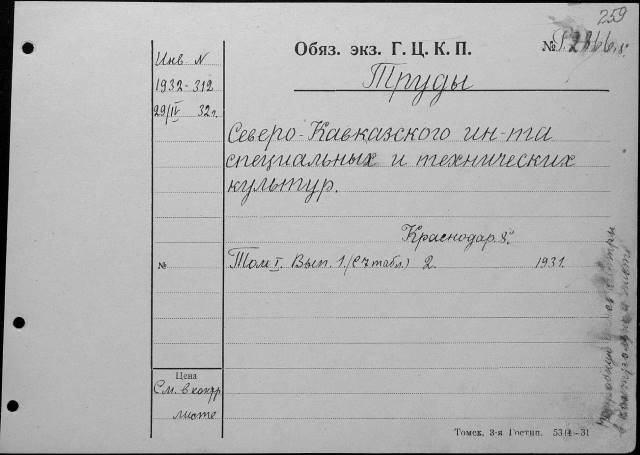 259
Обяз. экз. Г. Ц. К. П.
№
Труды
Инв N
1932-312
29/IV 32 г.
Северо-Кавказского ин-та
специальных и технических
культур.
Краснодар. 8°
№
Том I. Вып. 1 (с табл.) 2. 1931.
Цена
См. в контр
листе
Томск. 3-я Гостип. 53(1—31